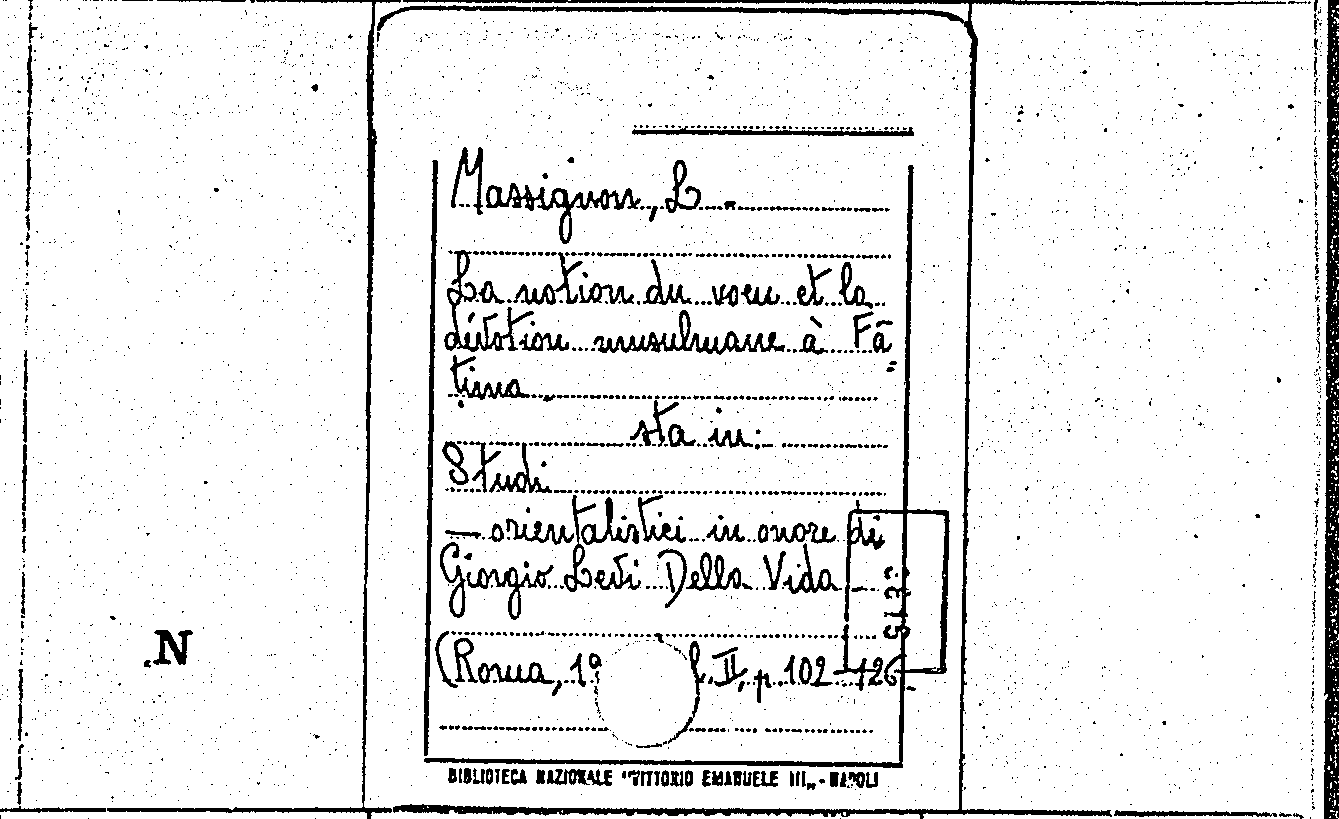 Massignon, L -
La notion du voeu et la
dévotion musulmane à Fā=
ṭima.
sta in:
Studi
— orientalistici in onore di
Giorgio Levi Della Vida -
(Roma, 19 l. II, p. 102-126.
.N
BIBLIOTECA NAZIONALE "VITTORIO EMANUELE III„ - NAPOLI